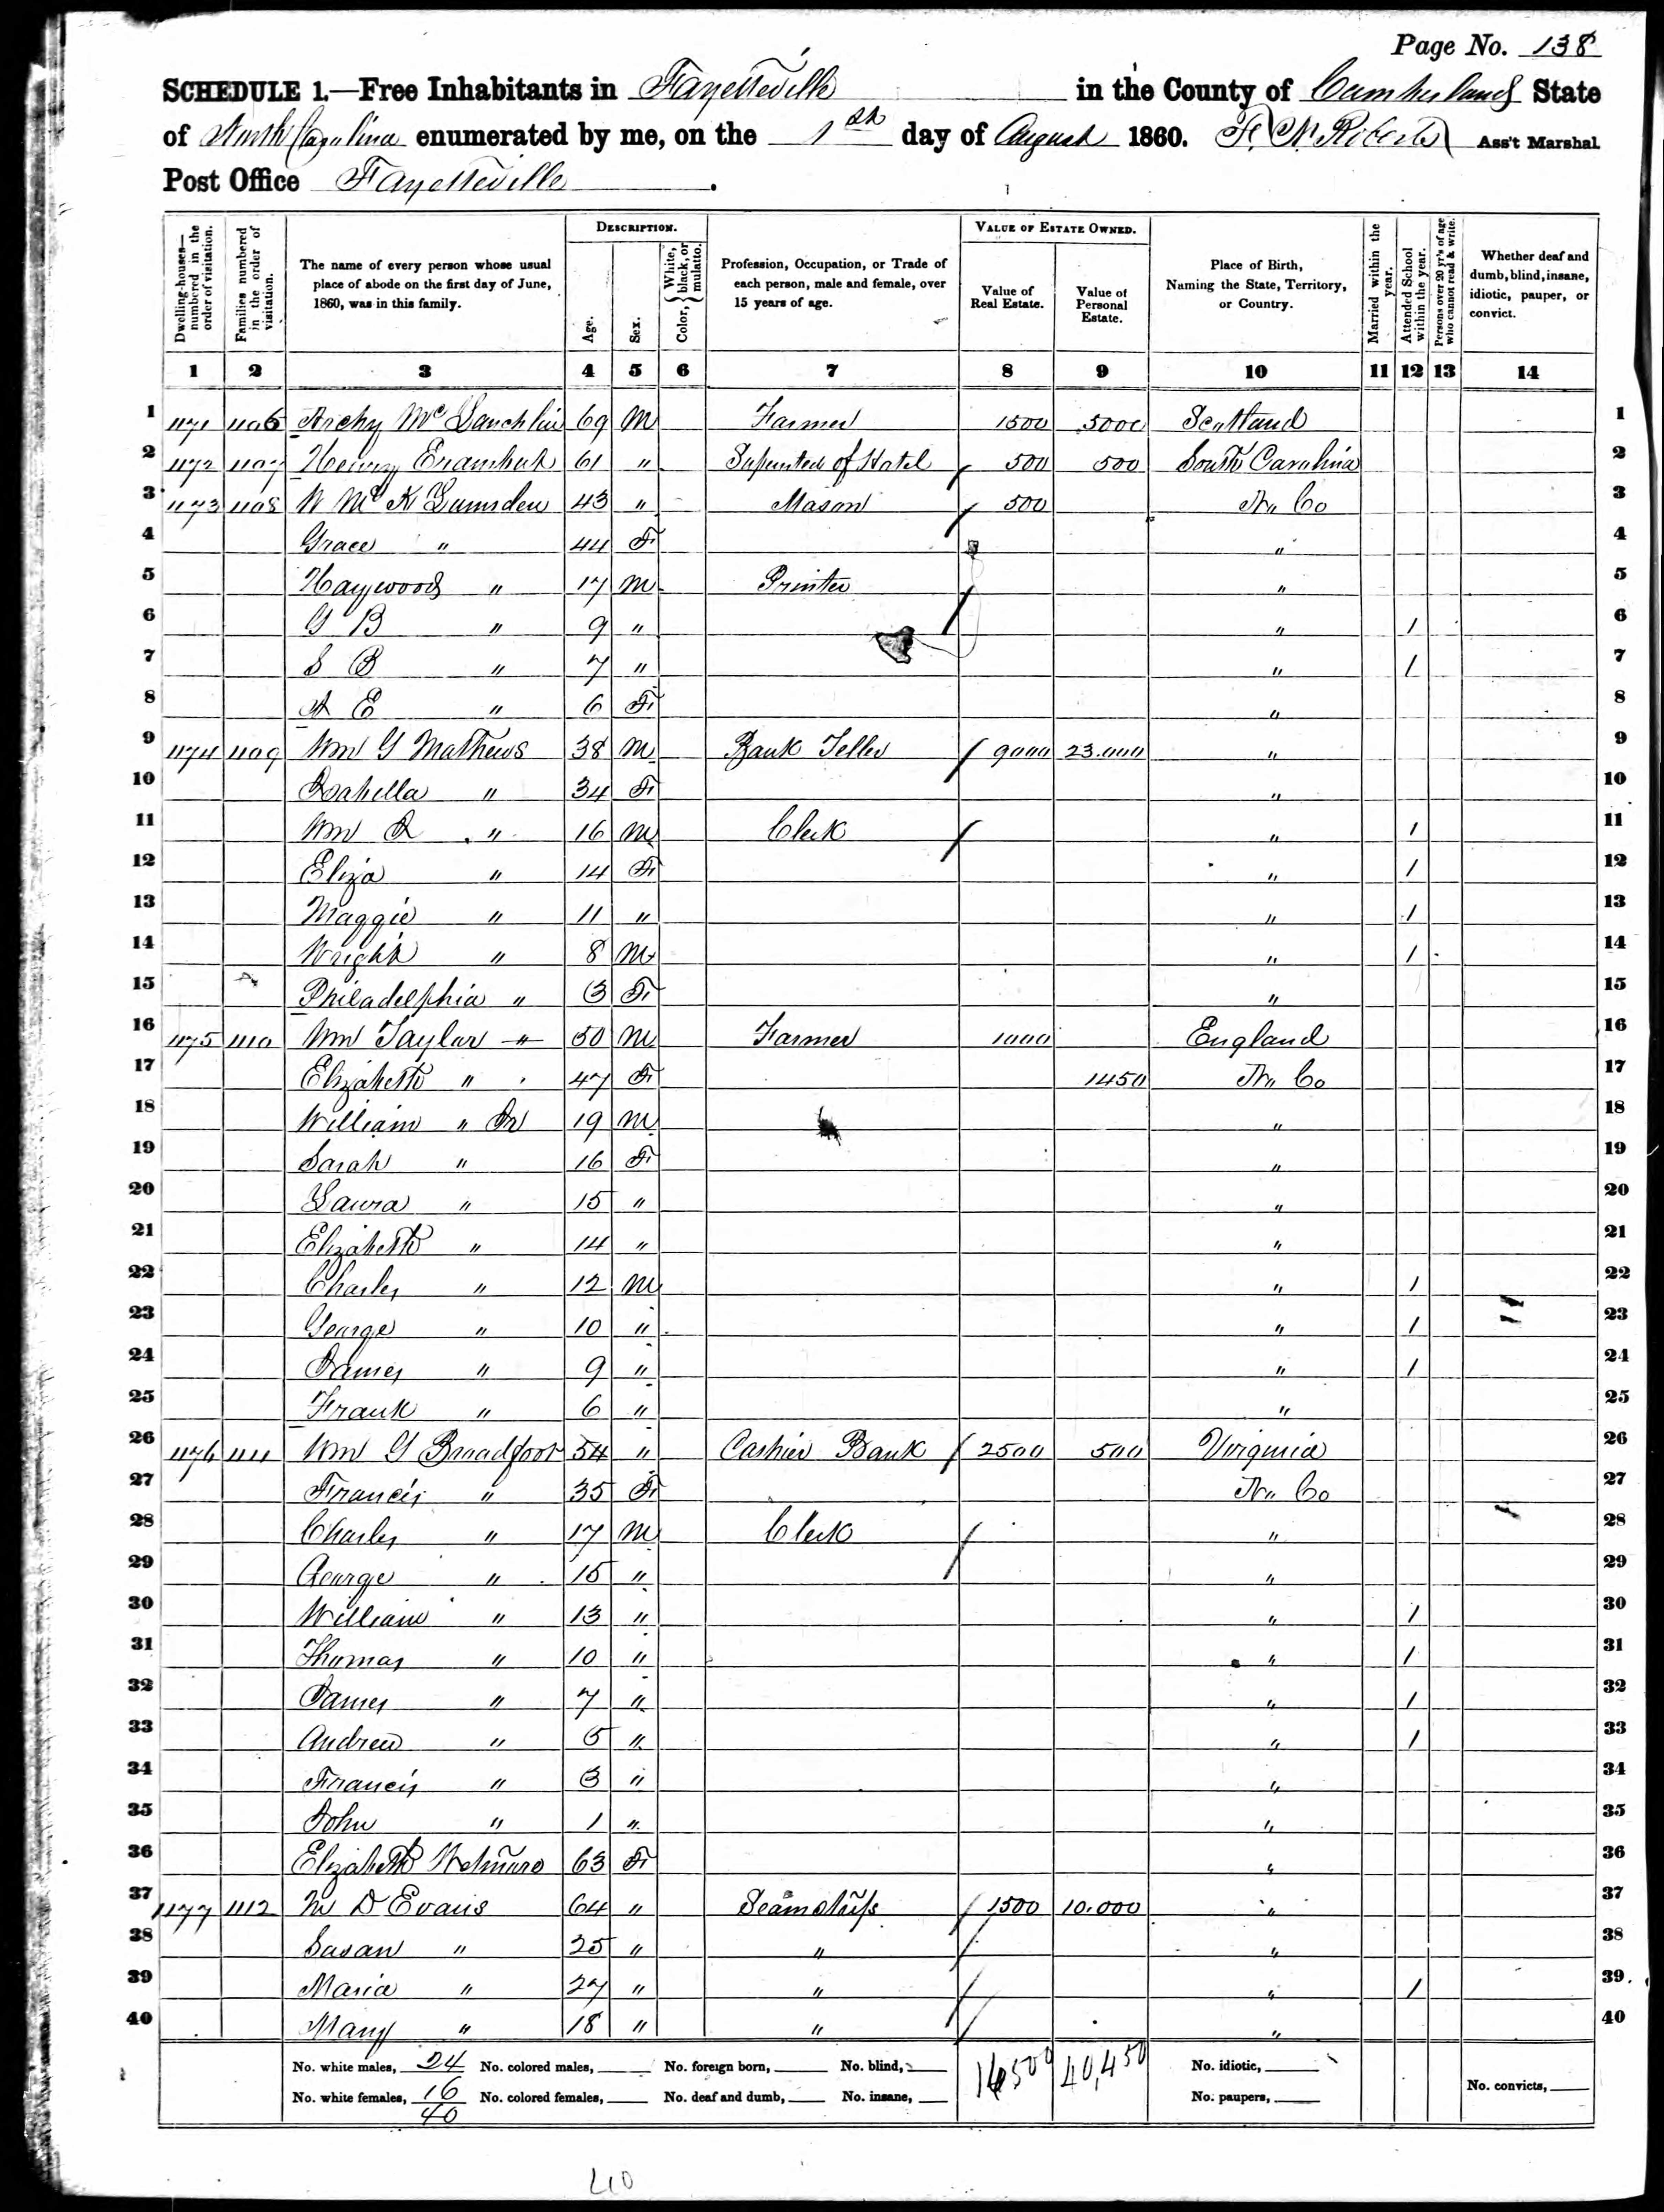 Page No. 138
SCHEDULE 1.—Free Inhabitants in Fayetteville in the County of Cumberland State
of North Carolina enumerated by me, on the 1st day of August 1860. Roberts Ass't Marshal.
Post Office Fayetteville.
Dwelling-houses—numbered in the order of visitation.
Families numbered in the order of visitation.
The name of every person whose usual place of abode on the first day of June, 1860, was in this family.
DESCRIPTION.
Age.
Sex.
Color, White, black, or mulatto.
Profession, Occupation, or Trade of each person, male and female, over 15 years of age.
VALUE OF ESTATE OWNED.
Value of Real Estate.
Value of Personal Estate.
Place of Birth, Naming the State, Territory, or Country.
Married within the year.
Attended School within the year.
Persons over 20 yr's of age who cannot read & write.
Whether deaf and dumb, blind, insane, idiotic, pauper, or convict.
1 2 3 4 5 6 7 8 9 10 11 12 13 14
1 1171 1106 Archy McLauchlin 69 M Farmer 1500 5000 Scotland 1
2 1172 1107 Henry 61 " of Hotel 500 500 South Carolina 2
3 1173 1108 W McK Lumsden 43 " Mason 500 No Co 3
4 Grace " 44 F " 4
5 Haywood " 17 M Printer " 5
6 G B " 9 " " / 6
7 S B " 7 " " / 7
8 A E " 6 F " 8
9 1174 1109 Wm G Mathews 38 M Bank Teller 9000 23.000 " 9
10 Isabella " 34 F " 10
11 Wm " 16 M Clerk " / 11
12 Eliza " 14 F " / 12
13 Maggie " 11 " " / 13
14 Wright " 8 M " / 14
15 Philadelphia " 3 F " 15
16 1175 1110 Wm Taylor 50 M Farmer 1000 England 16
17 Elizabeth " 47 F 1450 No Co 17
18 William " Jr 19 M " 18
19 Sarah " 16 F " 19
20 Laura " 15 " " 20
21 Elizabeth " 14 " " 21
22 Charles " 12 M " / 22
23 George " 10 " " / 23
24 James " 9 " " / 24
25 Frank " 6 " " 25
26 1176 1111 Wm G Broadfoot 54 " Cashier Bank 2500 500 Virginia 26
27 Francis " 35 F No Co 27
28 Charles " 17 M Clerk " 28
29 George " 15 " " 29
30 William " 13 " " / 30
31 Thomas " 10 " " / 31
32 James " 7 " " / 32
33 Andrew " 5 " " / 33
34 Francis " 3 " " 34
35 John " 1 " " 35
36 Elizabeth 63 F " 36
37 1177 1112 M D Evans 64 " Seamstress 1500 10.000 " 37
38 Susan " 25 " " " 38
39 Maria " 27 " " " / 39
40 Mary " 18 " " " 40
No. white males, 24 No. colored males, No. foreign born, No. blind, 16500 40,450 No. idiotic,
No. white females, 16 No. colored females, No. deaf and dumb, No. insane, No. paupers, No. convicts,
40
40